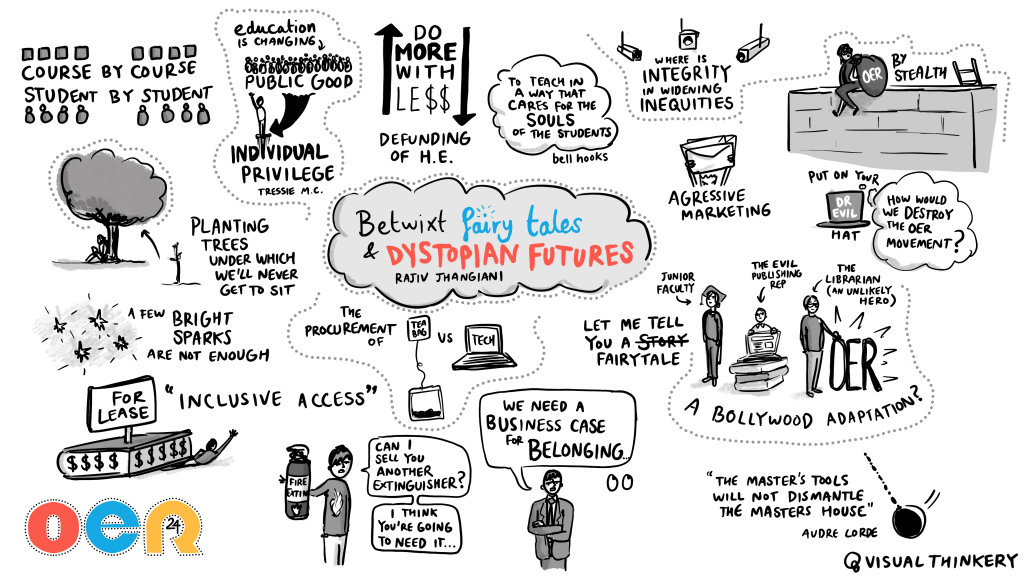 COURSE BY COURSE
STUDENT BY STUDENT
education
IS CHANGING
PUBLIC GOOD
INDIVIDUAL
PRIVILEGE
TRESSIE M.C.
DO
MORE
WITH
LE$$
DEFUNDING
OF H.E.
TO TEACH IN
A WAY THAT
CARES FOR THE
SOULS
OF THE STUDENTS
bell hooks
WHERE IS
INTEGRITY
IN WIDENING
INEQUITIES
OER
BY
STEALTH
AGRESSIVE
MARKETING
PUT ON YOUR
DR
EVIL
HAT
HOW WOULD
WE DESTROY
THE OER
MOVEMENT?
PLANTING
TREES
UNDER WHICH
WE'LL NEVER
GET TO SIT
Betwixt fairy tales
& DYSTOPIAN FUTURES
RAJIV JHANGIANI
A FEW BRIGHT
SPARKS
ARE NOT ENOUGH
THE
PROCUREMENT
OF
TEA
BAG
VS
TECH
JUNIOR
FACULTY
THE EVIL
PUBLISHING
REP
THE
LIBRARIAN
(AN UNLIKELY
HERO)
LET ME TELL
YOU A STORY
FAIRYTALE
OER
A BOLLYWOOD ADAPTATION?
FOR
LEASE
"INCLUSIVE ACCESS"
$$$$ $$$$$
FIRE
EXTIN
CAN I
SELL YOU
ANOTHER
EXTINGUISHER?
I THINK
YOU'RE GOING
TO NEED IT...
WE NEED A
BUSINESS CASE
FOR BELONGING...
"THE MASTER'S TOOLS
WILL NOT DISMANTLE
THE MASTERS HOUSE"
AUDRE LORDE
oer
24
VISUAL THINKERY